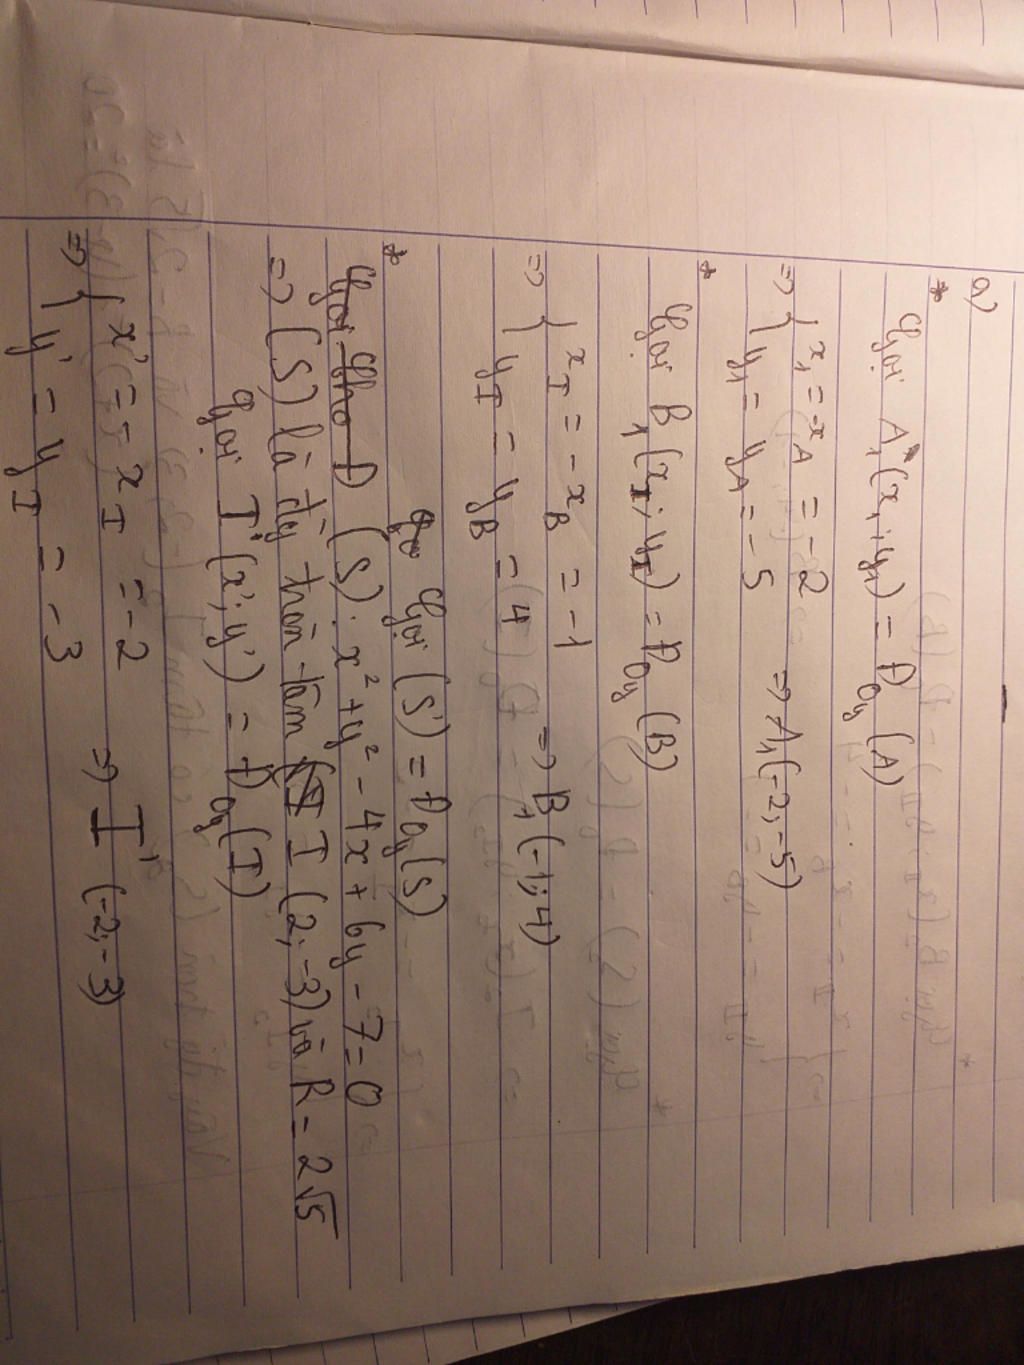 a)
* Gọi A₁(x₁;y₁) = Đ_Oy (A)
=> { x₁ = -x_A = -2
y₁ = y_A = -5 => A₁(-2;-5)
* Gọi B₁(x_I; y_I) = Đ_Oy (B)
=> { x_I = -x_B = -1
y_I = y_B = 4 => B₁(-1;4)
* Gọi (S') = Đ_Oy (S)
(S): x² + y² - 4x + 6y - 7 = 0
=> (S) là đg tròn tâm I (2;-3) và R = 2√5
Gọi I'(x';y') = Đ_Oy (I)
=> { x' = -x_I = -2
y' = y_I = -3 => I' (-2;-3)